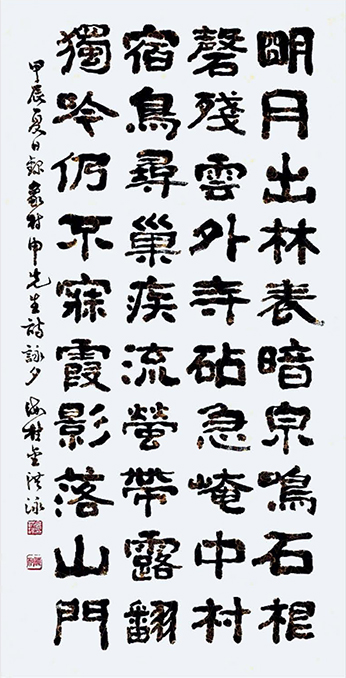 明月出林表暗泉鳴石根
磬殘雲外寺砧急崦中村
宿鳥尋巢疾流螢帶露翻
獨吟仍不寐霞影落山門
甲辰夏日錄象村申先生詩詠夕